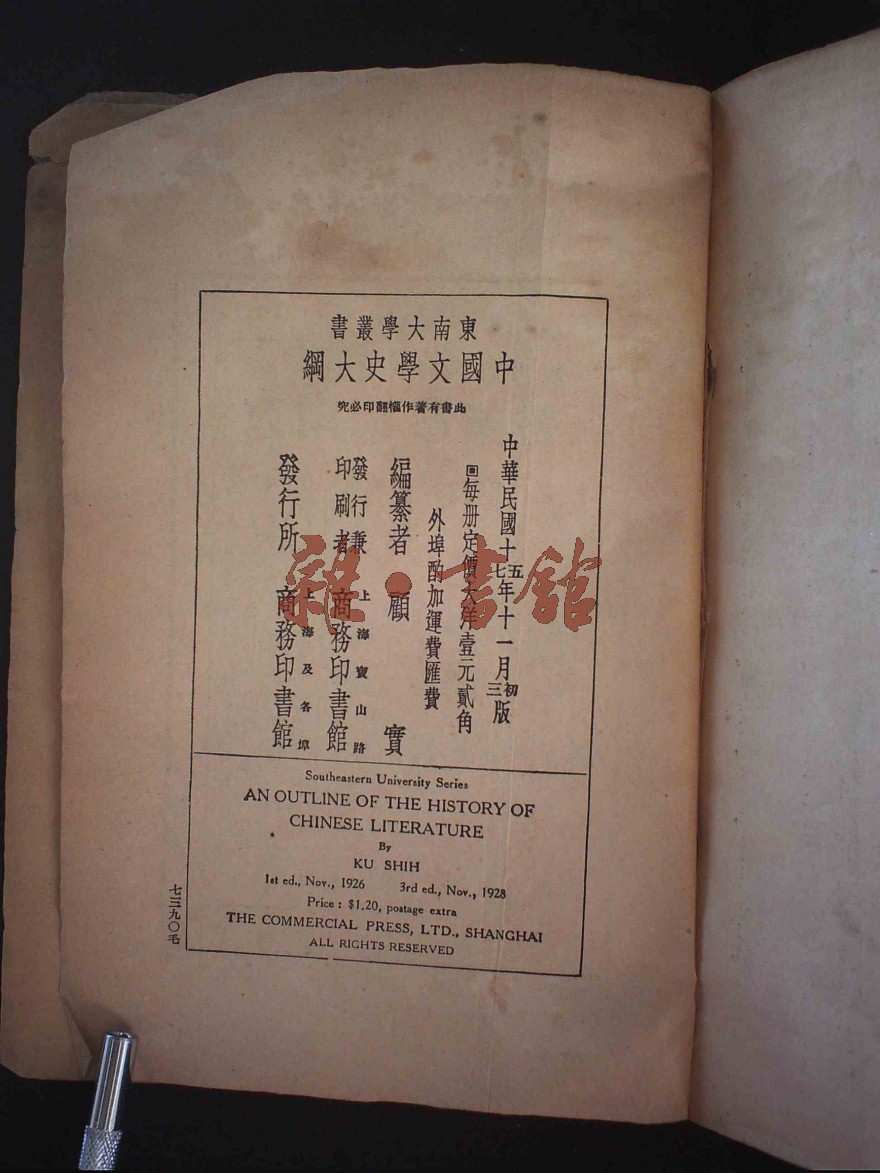 東南大學叢書
中國文學史大綱
此書有著作權翻印必究
中華民國十五年十一月初版
七三
回每册定價大洋壹元貳角
外埠酌加運費匯費
編纂者 顧實
發行兼印刷者 上海寶山路 商務印書館
發行所 上海及各埠 商務印書館
Southeastern University Series
AN OUTLINE OF THE HISTORY OF
CHINESE LITERATURE
By
KU SHIH
1st ed., Nov., 1926 3rd ed., Nov., 1928
Price : $1,20, postage extra
THE COMMERCIAL PRESS, LTD., SHANGHAI
ALL RIGHTS RESERVED
七三九〇毛
雜·書館